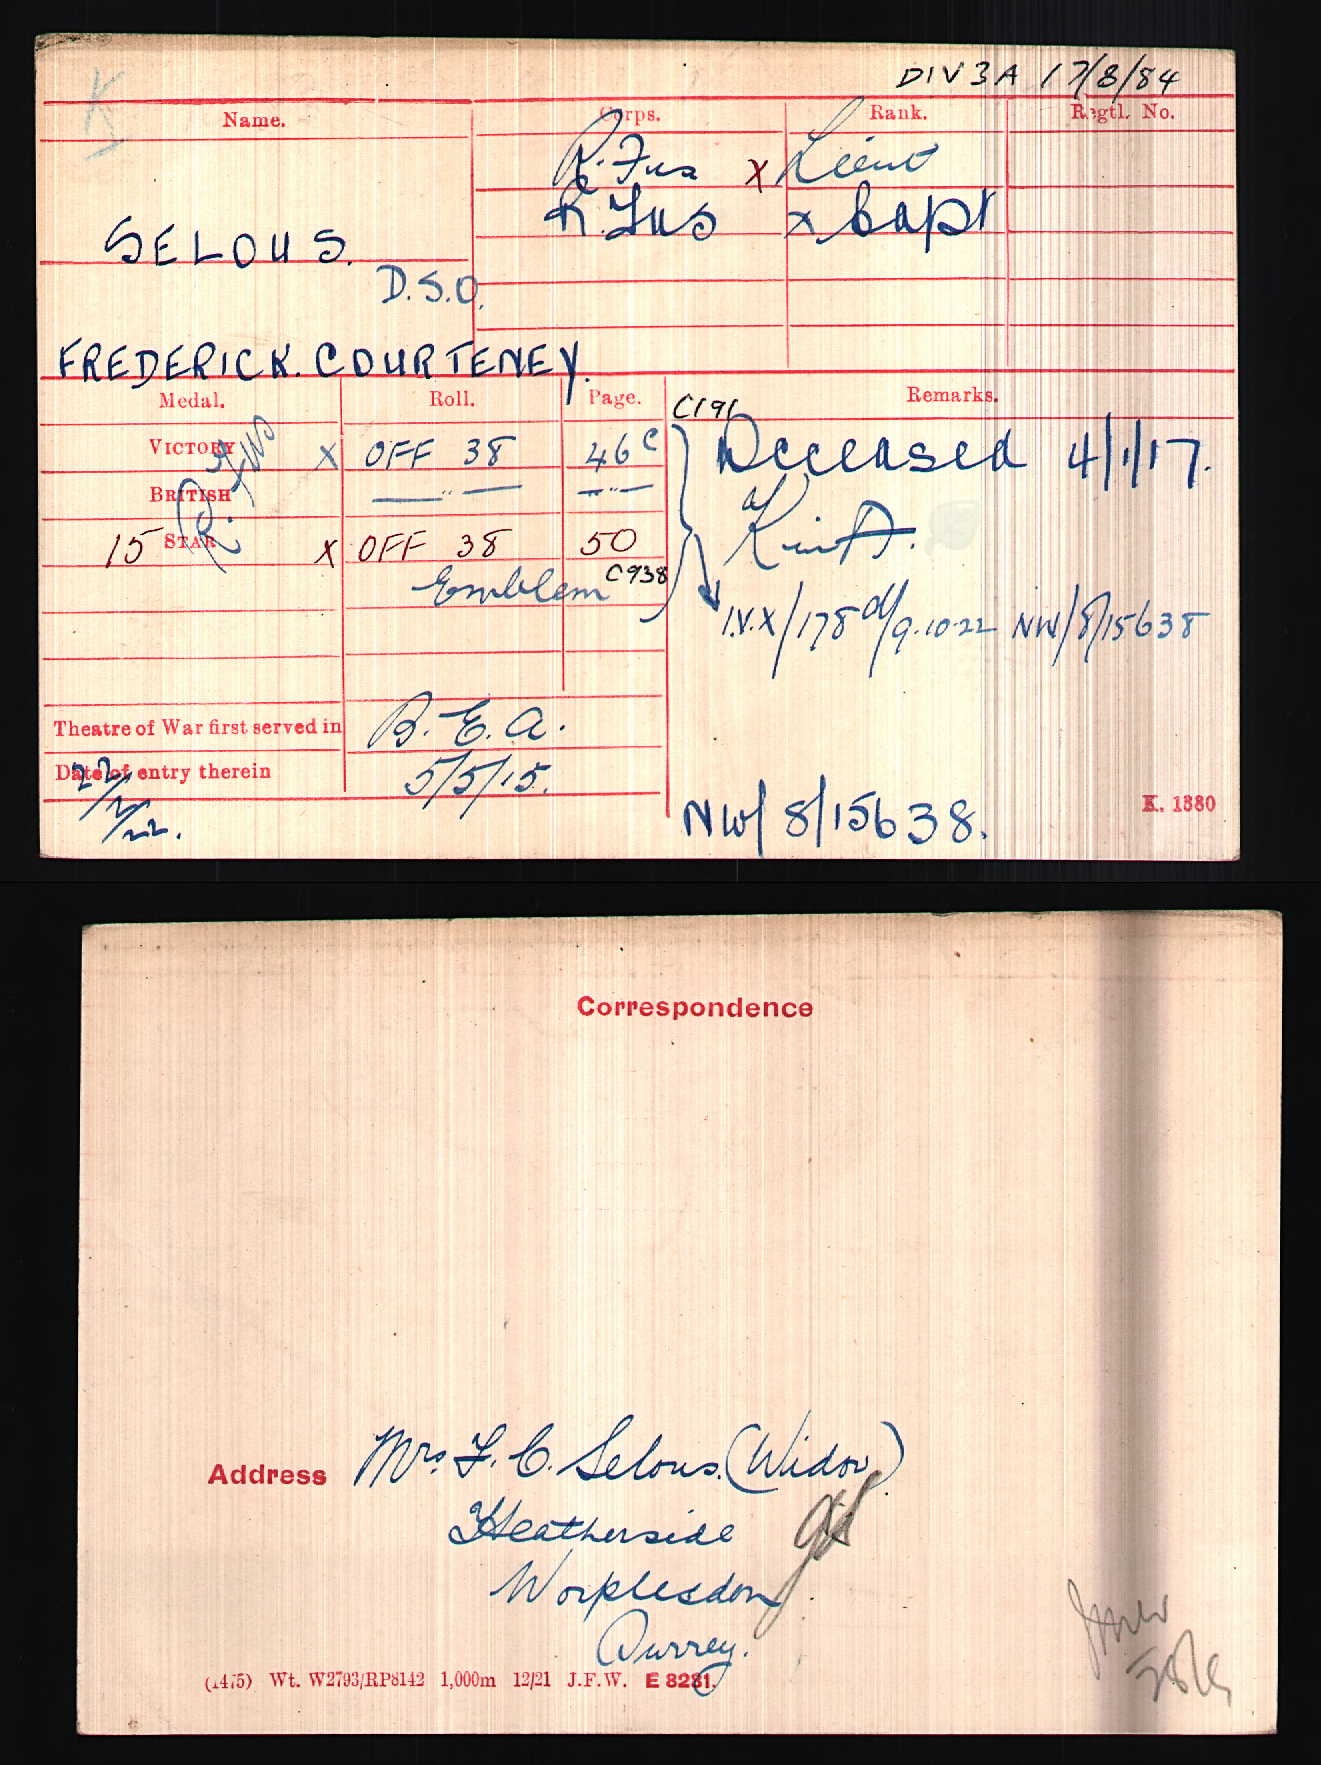 K
DIV 3A 17/8/84
Name. Corps. Rank. Regtl. No.
R. Fus X Lieut
R. Fus X Capt
SELOUS.
D.S.O.
FREDERICK. COURTENEY.
Medal. Roll. Page. Remarks.
C191
VICTORY X OFF 38 46 C Deceased 4/1/17.
BRITISH —— " —— — " —
R. Fus
K in A.
15 STAR X OFF 38 50
Emblem C938
I.V.X/178 d/9.10.22 NW/8/15638
Theatre of War first served in B.E.A.
Date of entry therein 5/5/15.
22/2/22.
NW/8/15638.
K. 1380
Correspondence
Address Mrs. F. C. Selous. (Widow)
Heatherside
Worplesdon
Surrey.
(1475) Wt. W2793/RP8142 1,000m 12/21 J.F.W. E 8281.